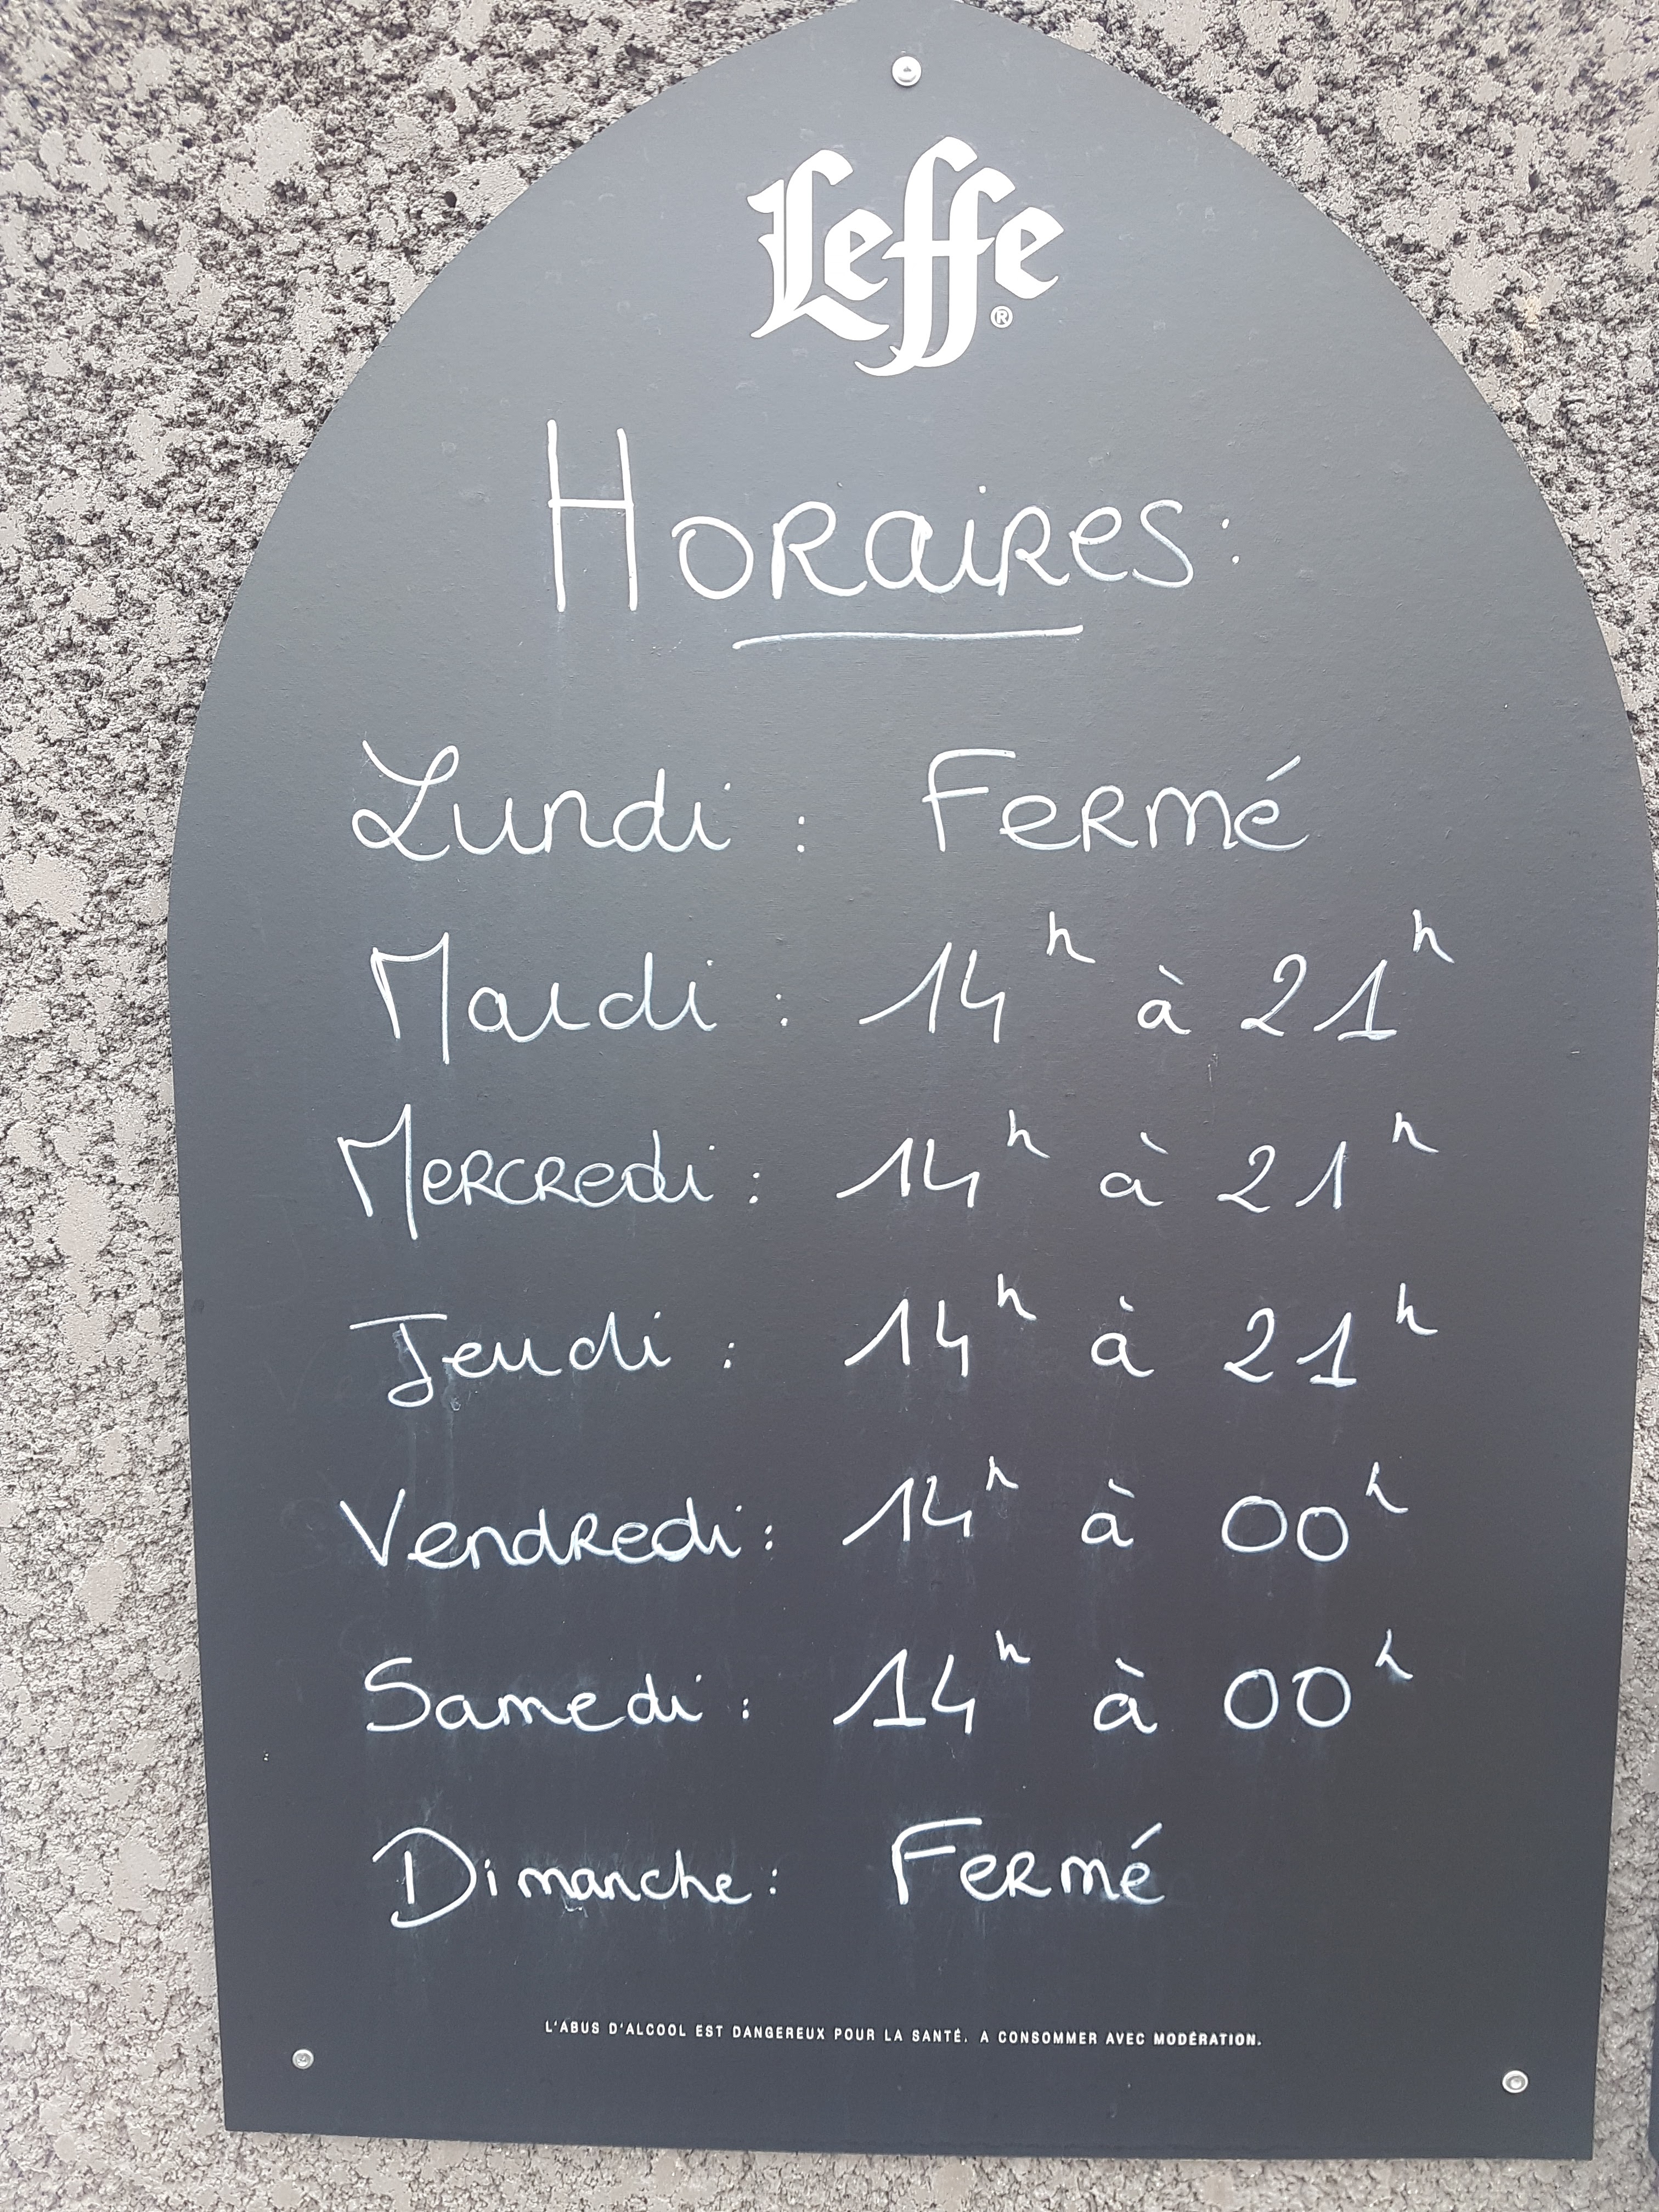 Leffe®
Horaires :
Lundi : Fermé
Mardi : 14h à 21h
Mercredi : 14h à 21h
Jeudi : 14h à 21h
Vendredi : 14h à 00h
Samedi : 14h à 00h
Dimanche : Fermé
L'ABUS D'ALCOOL EST DANGEREUX POUR LA SANTÉ. A CONSOMMER AVEC MODÉRATION.